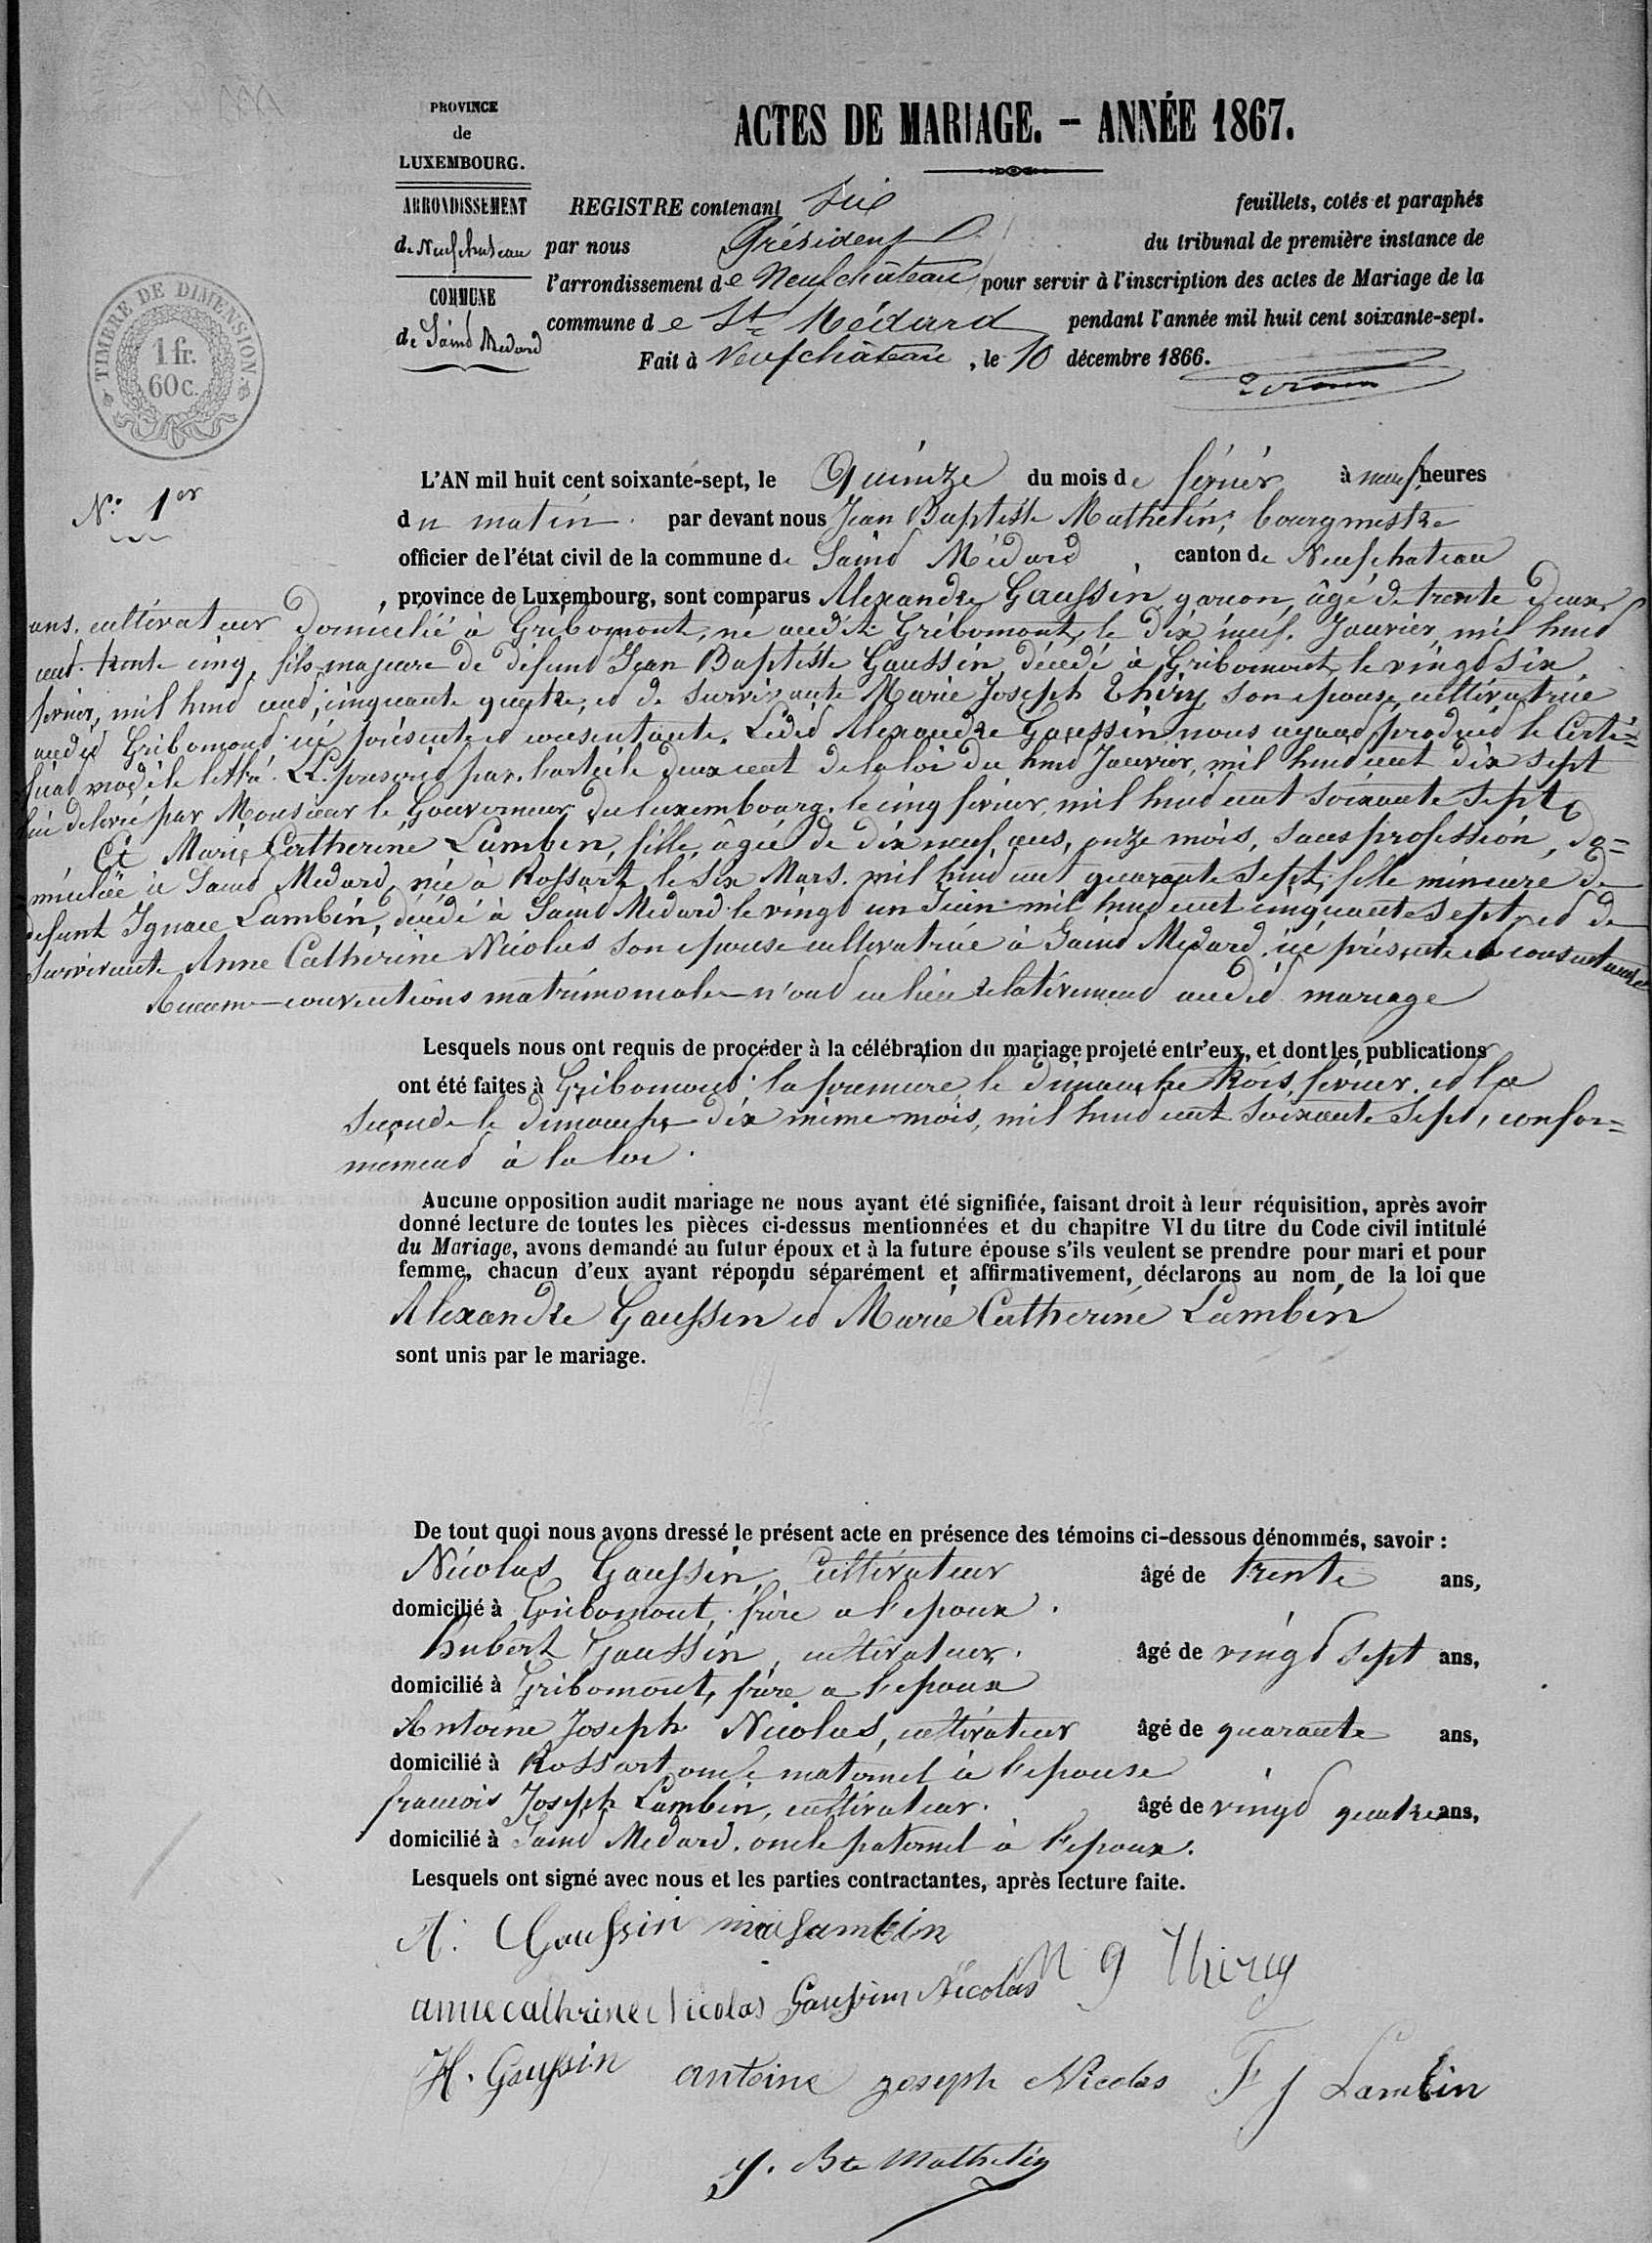 PROVINCE
de
LUXEMBOURG.
ARRONDISSEMENT
de Neufchateau
COMMUNE
de Saind Medard
TIMBRE DE DIMENSION
1 fr.
60 c.
ACTES DE MARIAGE. – ANNÉE 1867.
REGISTRE contenant Six feuillets, cotés et paraphés
par nous Président du tribunal de première instance de
l'arrondissement de Neufchâteau pour servir à l'inscription des actes de Mariage de la
commune de St Médard pendant l'année mil huit cent soixante-sept.
Fait à Neufchâteau, le 10 décembre 1866.
No. 1er
L'AN mil huit cent soixante-sept, le Quinze du mois de février à neuf heures
du matin. par devant nous Jean Baptiste Mathelin, bourgmestre
officier de l'état civil de la commune de Saind Médard, canton de Neufchateau
, province de Luxembourg, sont comparus Alexandre Gaussin garcon, âgé de trente deux
ans. cultivateur domicilié à Gribomont, né audit Gribomont, le dix neuf. Janvier mil huid
cent. trente cinq, fils majeure de défund Jean Baptiste Gaussin, décédé à Gribomont le vingd six
fevrier, mil huid cend, cinquante quatre, ed de survivante Marie Joseph Thiry, son epouse, cultivatrice
audid Gribomond ici présente ed consentante. Ledid Alexandre Gaussin nous ayand produid le Certi=
ficad modèle lettre. LL. prescrid par l'article deux cent de la loi du huid Janvier, mil huid cent dix sept
lui delivré par Monsieur le Gouverneur du luxembourg. le cinq fevrier, mil huid cent soixante sept
Et Marie Catherine Lambin, fille, âgée de dix neuf ans, onze mois, sans profession, do=
miciliée à Saind Medard, née à Rossart, le six Mars. mil huid cent quarante sept, fille mineure de
defunt Ignace Lambin, décédé à Saind Medard le vingd un Juin mil huid cent cinquante sept, ed de
survivante Anne Catherine Nicolas son epouse cultivatrice à Saind Medard, ici présente et consentante
Aucune conventions matrimoniales n'ond eu lieu relativemend audid mariage
Lesquels nous ont requis de procéder à la célébration du mariage projeté entr'eux, et dont les publications
ont été faites à Gribomond: la premiere, le dimanche trois, fevrier. ed la
seconde le dimanche dix même mois, mil huid cent soixante sept, confor=
mement à la loi.
Aucune opposition audit mariage ne nous ayant été signifiée, faisant droit à leur réquisition, après avoir
donné lecture de toutes les pièces ci-dessus mentionnées et du chapitre VI du titre du Code civil intitulé
du Mariage, avons demandé au futur époux et à la future épouse s'ils veulent se prendre pour mari et pour
femme, chacun d'eux ayant répondu séparément et affirmativement, déclarons au nom de la loi que
Alexandre Gaussin ed Marie Catherine Lambin
sont unis par le mariage.
De tout quoi nous avons dressé le présent acte en présence des témoins ci-dessous dénommés, savoir :
Nicolas Gaussin, Cultivateur âgé de trente ans,
domicilié à Gribomont, frère a l'epoux.
Hubert Gaussin, cultivateur. âgé de vingd sept ans,
domicilié à Gribomont, frère a l'epoux
Antoine Joseph Nicolas, cultivateur âgé de quarante ans,
domicilié à Rossart oncle maternel à l'epouse
francois Joseph Lambin, cultivateur. âgé de vingd quatre ans,
domicilié à Saind Medard. oncle paternel à l'epoux.
Lesquels ont signé avec nous et les parties contractantes, après lecture faite.
A. Gaussin mc Lambin
M J Thiry
anne cathrine Nicolas Gaussin Nicolas
H. Gaussin antoine joseph Nicolas F J Lambin
J. Bte Mathelin